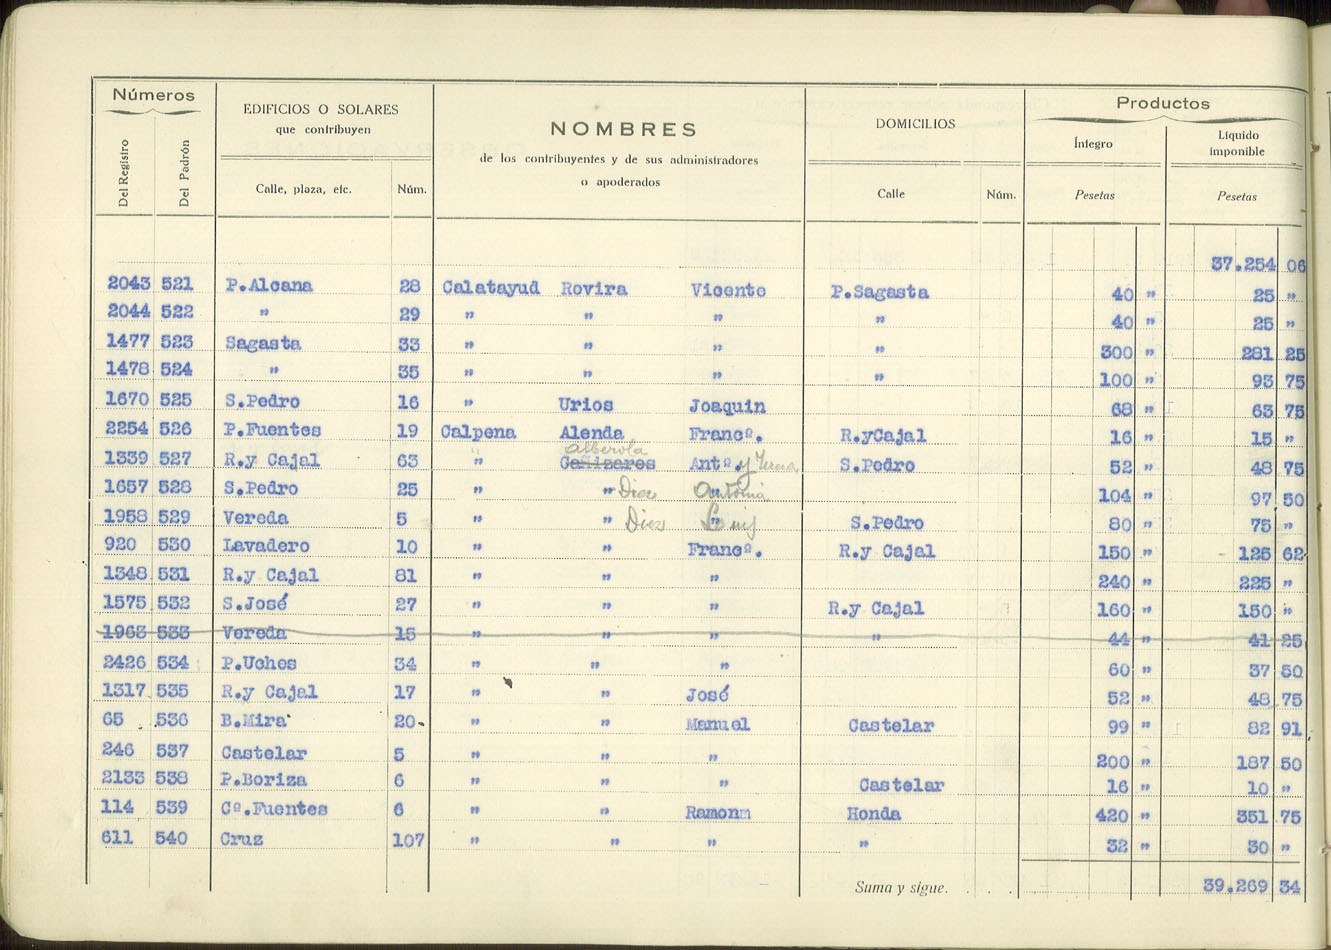 Números
EDIFICIOS O SOLARES
que contribuyen
NOMBRES
de los contribuyentes y de sus administradores
o apoderados
DOMICILIOS
Productos
Íntegro
Líquido
imponible
Del Registro
Del Padrón
Calle, plaza, etc.
Núm.
Calle
Núm.
Pesetas
Pesetas
37.254 06
2043 521 P.Alcana 28 Calatayud Rovira Vicente P.Sagasta 40 " 25 "
2044 522 " 29 " " " " 40 " 25 "
1477 523 Sagasta 33 " " " " 300 " 281 25
1478 524 " 35 " " " " 100 " 93 75
1670 525 S.Pedro 16 " Urios Joaquin 68 " 63 75
2254 526 P.Fuentes 19 Calpena Alenda Francº. R.yCajal 16 " 15 "
alberola
1339 527 R.y Cajal 63 " Cañizares Antº. y Teresa S.Pedro 52 " 48 75
1657 528 S.Pedro 25 " " Diez " Antonia 104 " 97 50
1958 529 Vereda 5 " " Diez " Luis S.Pedro 80 " 75 "
920 530 Lavadero 10 " " Francº. R.y Cajal 150 " 125 62
1348 531 R.y Cajal 81 " " " 240 " 225 "
1575 532 S.José 27 " " " R.y Cajal 160 " 150 "
1963 533 Vereda 15 " " " " 44 " 41 25
2426 534 P.Uches 34 " " " 60 " 37 50
1317 535 R.y Cajal 17 " " José 52 " 48 75
65 536 B.Mira 20 " " Manuel Castelar 99 " 82 91
246 537 Castelar 5 " " " 200 " 187 50
2133 538 P.Boriza 6 " " " Castelar 16 " 10 "
114 539 Cº.Fuentes 6 " " Ramonm Honda 420 " 351 75
611 540 Cruz 107 " " " " 32 " 30 "
Suma y sigue. . . . 39.269 34